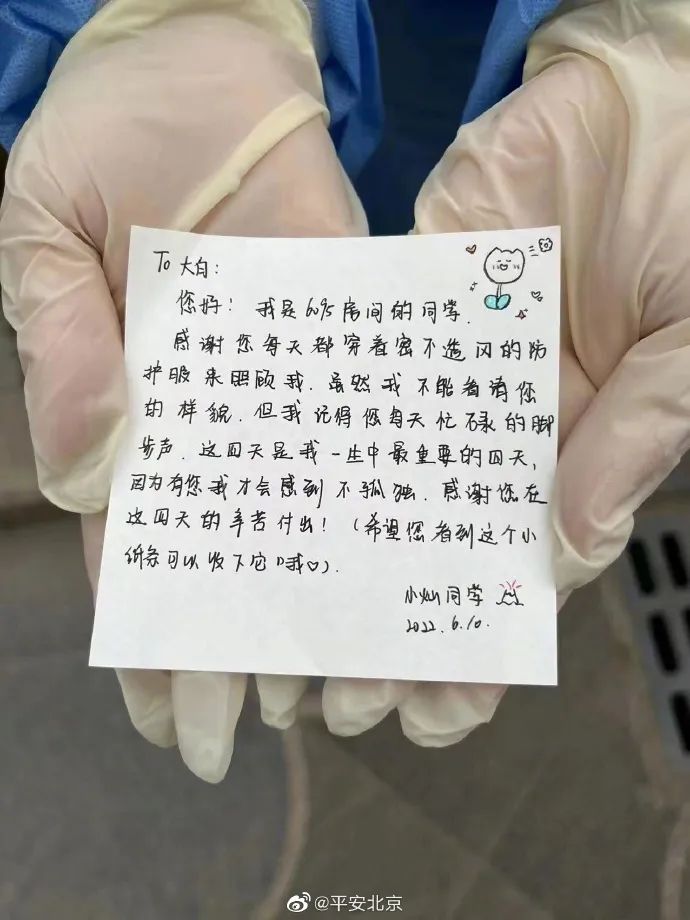 To 大白:
您好! 我是6095房间的同学.
感谢您每天都穿着密不透风的防
护服来照顾我. 虽然我不能看清您
的样貌. 但我记得您每天忙碌的脚
步声. 这四天是我一生中最重要的四天,
因为有您我才会感到不孤独. 感谢您在
这四天的辛苦付出! (希望您看到这个小
纸条可以收下它 哦♡).
小灿同学
2022.6.10.
@平安北京